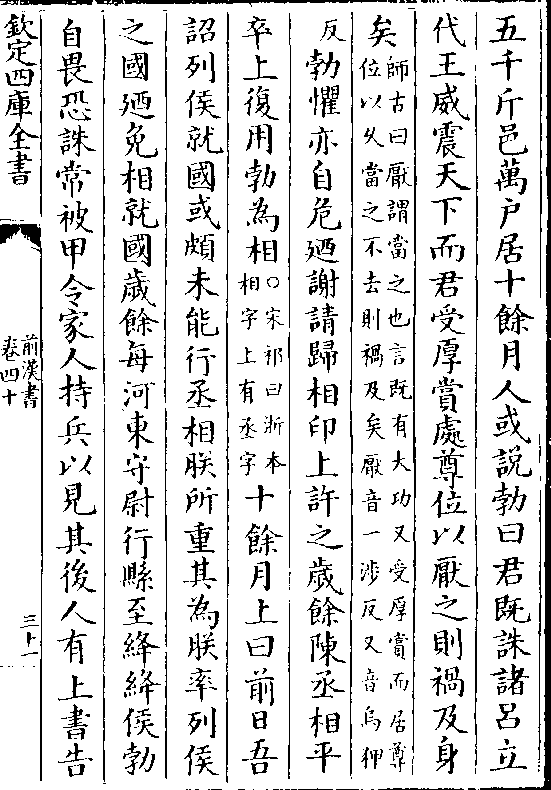 五千斤邑萬户居十餘月人或説勃曰君既誅諸呂立
代王威震天下而君受厚賞處尊位以厭之則禍及身
矣師古曰厭謂當之也言既有大功又受厚賞而居尊
位以久當之不去則禍及矣厭音一涉反又音烏狎
反勃懼亦自危廼謝請歸相印上許之歲餘陳丞相平
卒上復用勃為相○宋祁曰浙本
相字上有丞字十餘月上曰前日吾
詔列侯就國或頗未能行丞相朕所重其為朕率列侯
之國廼免相就國歲餘每河東守尉行縣至絳絳侯勃
自畏恐誅常被甲令家人持兵以見其後人有上書告
欽定四庫全書
前漢書
卷四十
三十一